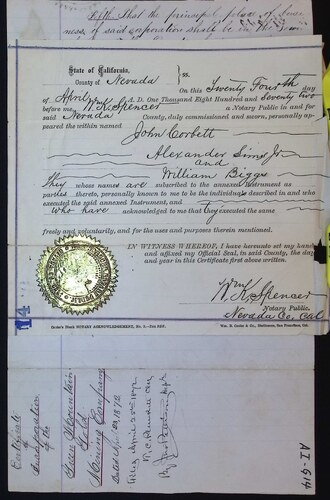 Fifth That the principal place of busi
ness of said corporation shall be in the Town
State of California,
County of Nevada } ss.
On this Twenty Fourth day
of April A. D. One Thousand Eight Hundred and Seventy two
before me W. R. Spencer a Notary Public in and for
said Nevada County, duly commissioned and sworn, personally ap-
peared the within named
John Corbett
Alexander Sims Jr
and
William Biggs
They whose names are subscribed to the annexed Instrument as
parties thereto, personally known to me to be the individuals described in and who
executed the said annexed Instrument, and
who have acknowledged to me that they executed the same
freely and voluntarily, and for the uses and purposes therein mentioned.
IN WITNESS WHEREOF, I have hereunto set my hand
and affixed my Official Seal, in said County, the day
and year in this Certificate first above written.
W. R. Spencer
Notary Public,
Nevada Co. Cal
14
Certificate
of
Incorporation
of the
Mountain
Gold
Mining Company
Filed April 25th 1872
AI-614